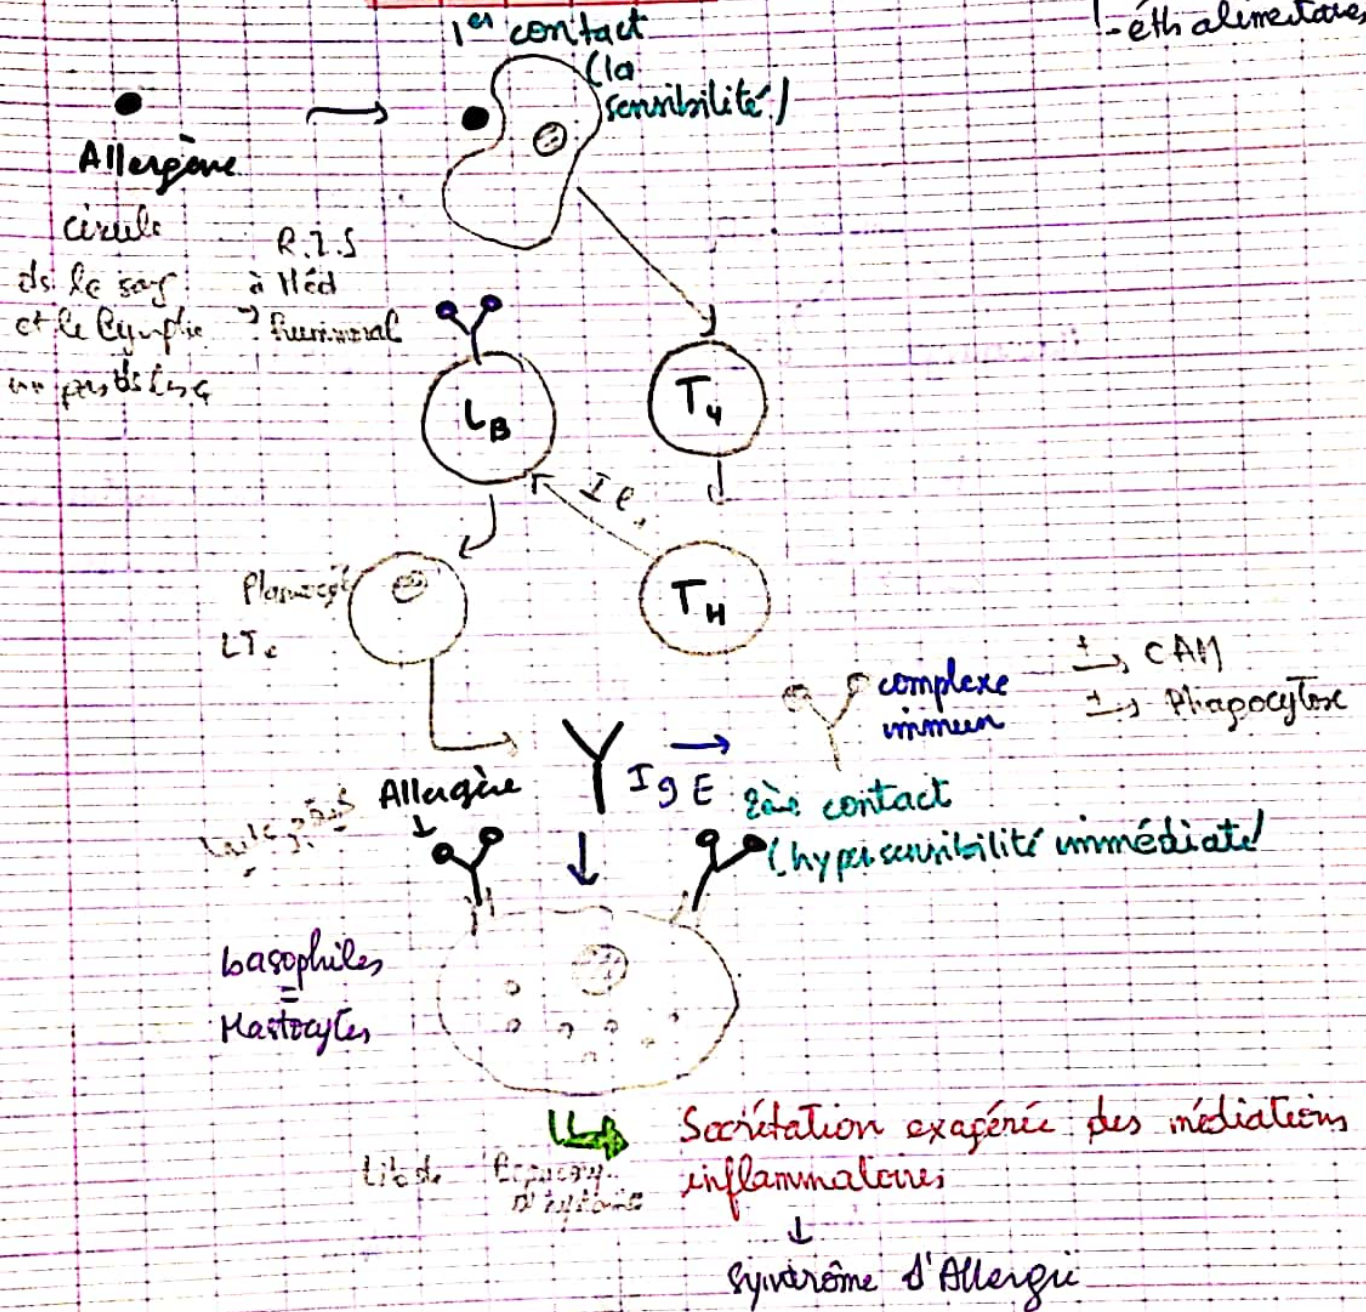 1er contact
(la
sensibilité)
- éth alimentaires
Allergène
circule
ds le sang
et le lymphe
R.I.S
à Méd
humoral
LB
T4
Il
TH
Plasmocyte
LTc
complexe
immun
+→ CAM
+→ Phagocytose
IgE
Allergène
2ème contact
(hypersensibilité immédiate)
basophiles
=
Mastocytes
Libde
Sécrétation exagérée des médiateurs
inflammatoires
syndrôme d'Allergie